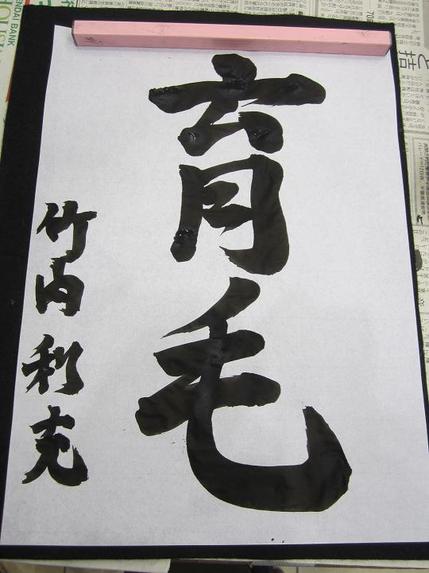 育毛
竹内利克